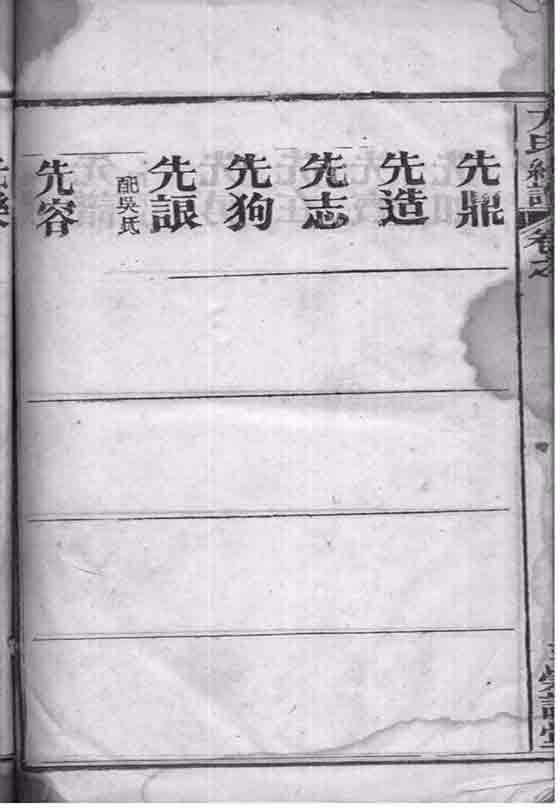 氏總譜 卷之
先鼎
先造
先志
先狗
先詪
配吳氏
先容